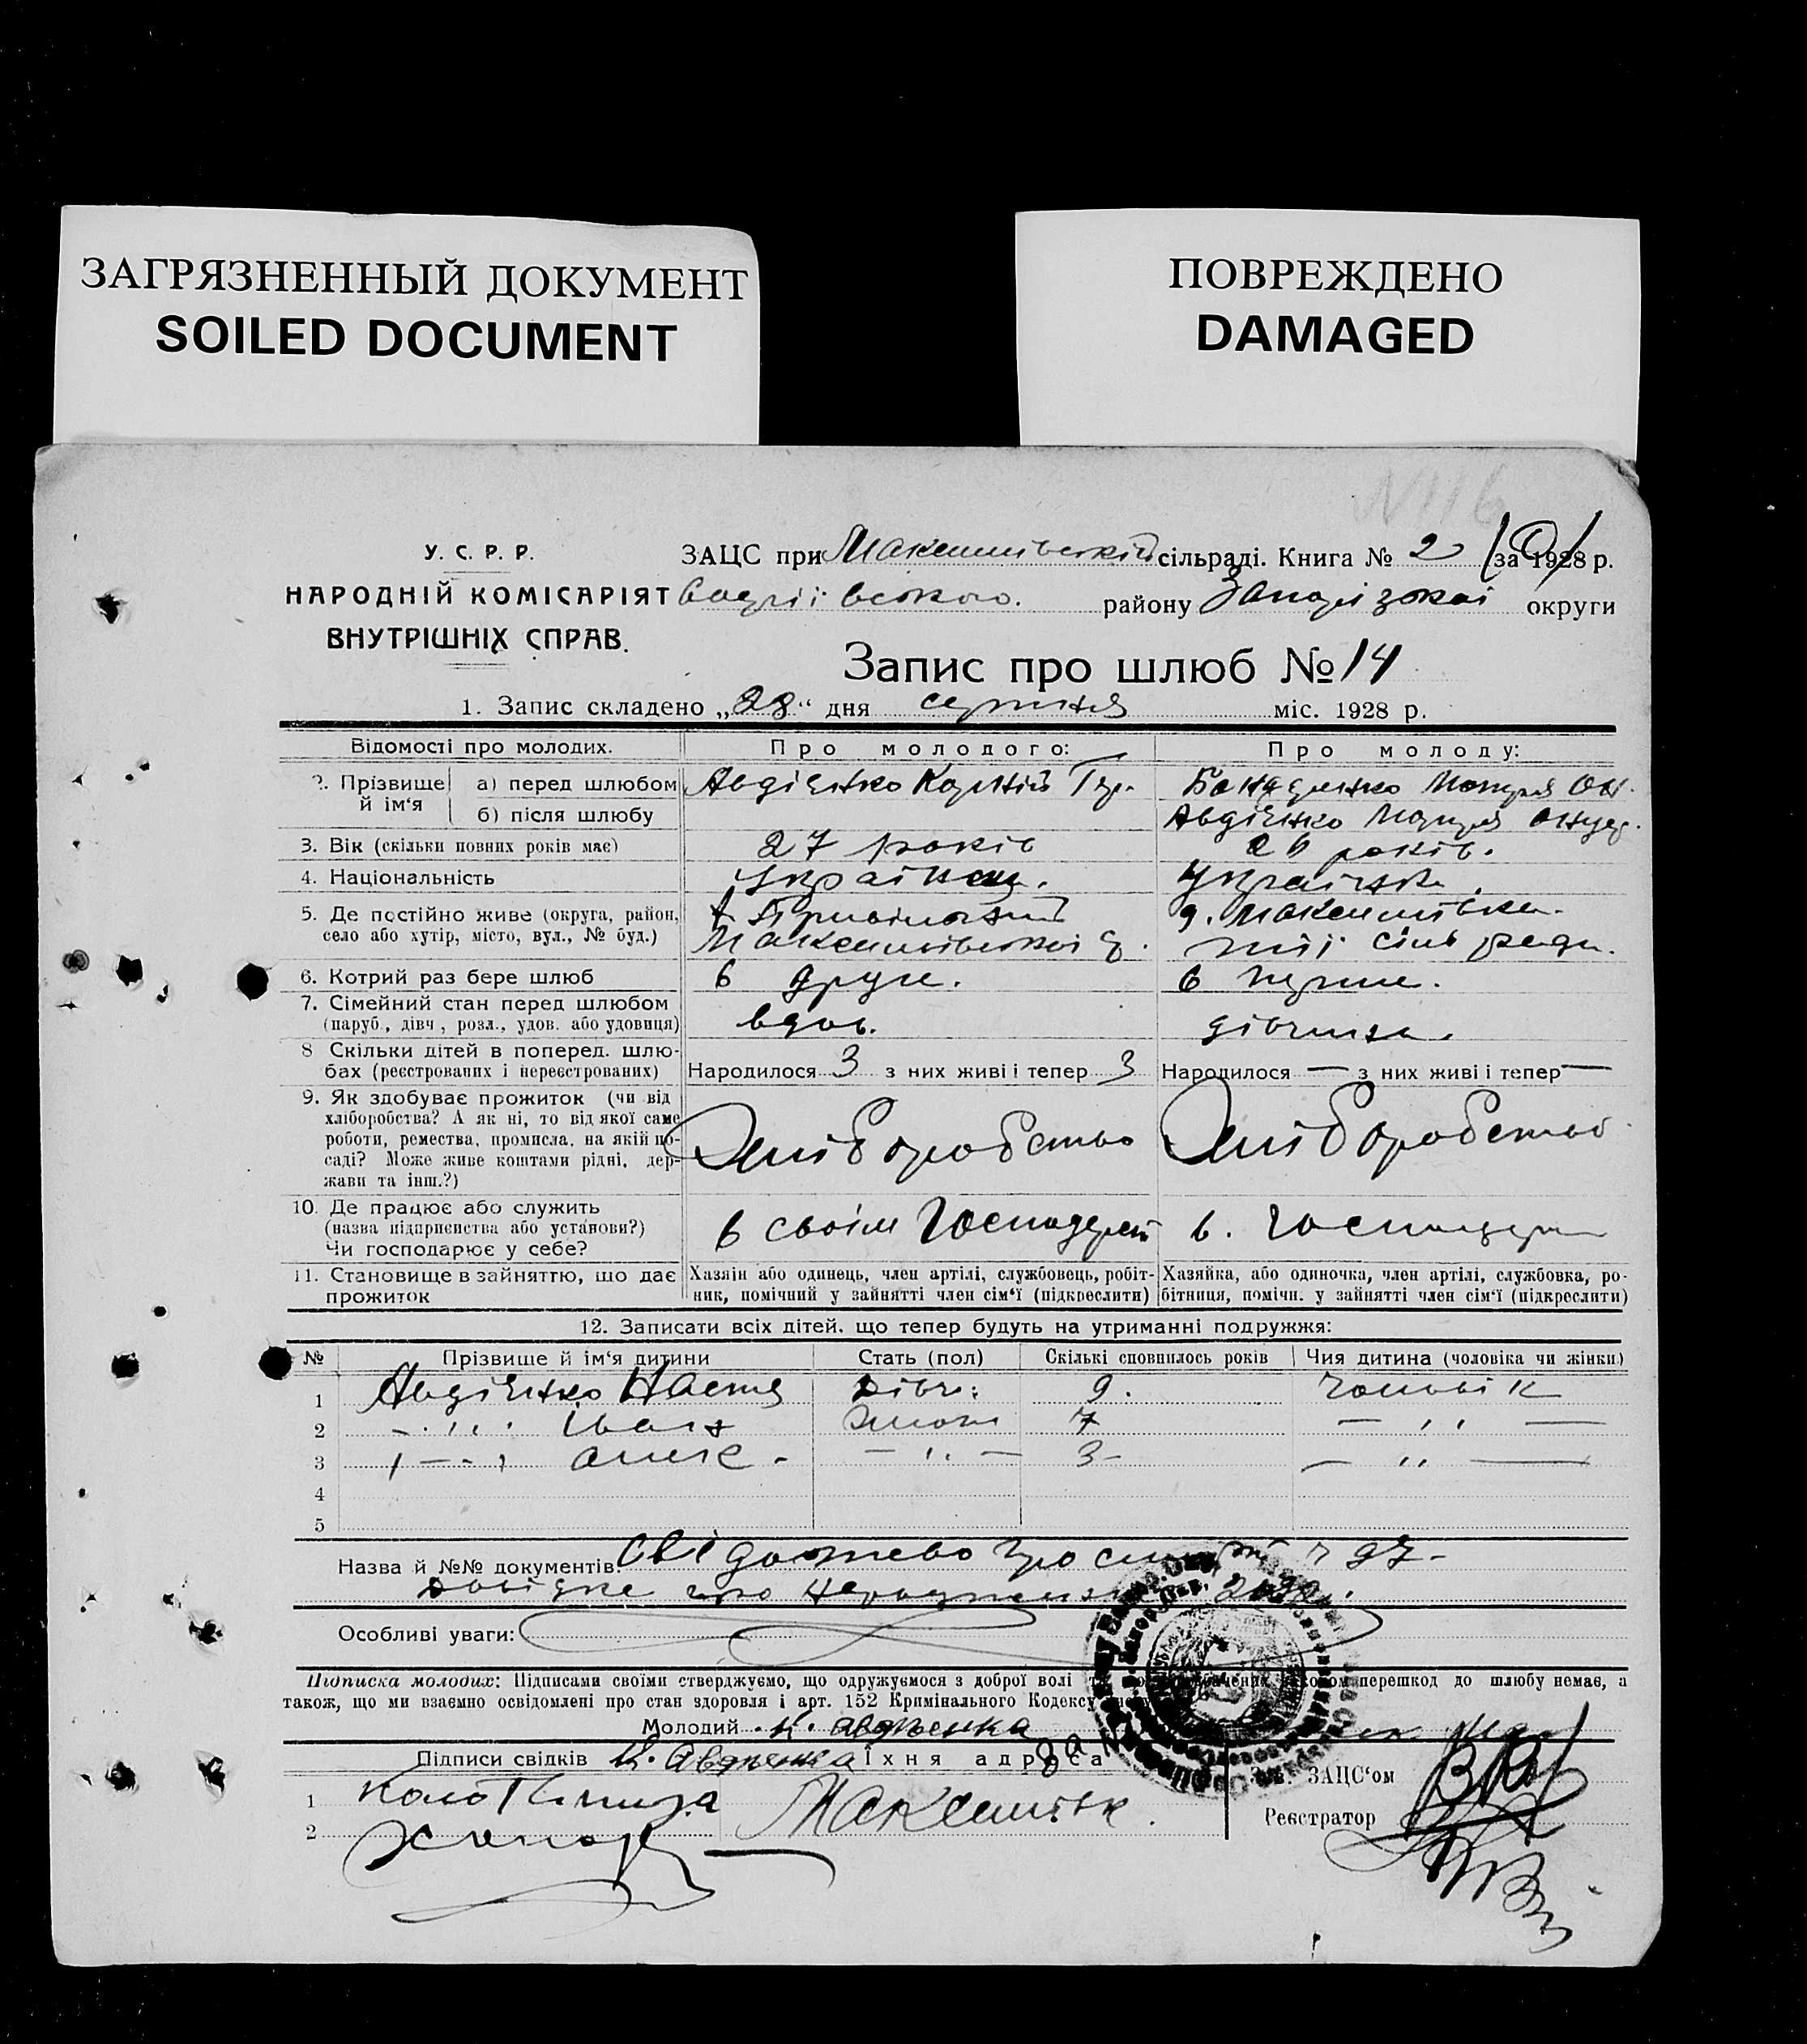 ЗАГРЯЗНЕННЫЙ ДОКУМЕНТ
SOILED DOCUMENT
ПОВРЕЖДЕНО
DAMAGED
№ 116
У. С. Р. Р.
НАРОДНІЙ КОМІСАРІЯТ
ВНУТРІШНІХ СПРАВ.
ЗАЦС при Максимівській сільраді. Книга № 2 за 1928 р.
району Запорізької округи
Запис про шлюб № 14
1. Запис складено „28" дня серпня міс. 1928 р.
Відомості про молодих. Про молодого: Про молоду:
2. Прізвище й ім'я
а) перед шлюбом Авдієнко Корній
б) після шлюбу Авдієнко
3. Вік (скільки повних років має) 27 років 26 років.
4. Національність Українец. Українка.
5. Де постійно живе (округа, район, с. Максимівка.
село або хутір, місто, вул., № буд.) Максимівської сіль ради.
6. Котрий раз бере шлюб в друге. в перше.
7. Сімейний стан перед шлюбом
(паруб., дівч., розл., удов. або удовиця) вдов. дівчина.
8 Скільки дітей в поперед. шлю-
бах (реєстрованих і нереєстрованих) Народилося 3 з них живі і тепер 3 Народилося — з них живі і тепер —
9. Як здобуває прожиток (чи від
хліборобства? А як ні, то від якої саме
роботи, ремества, промисла, на якій по-
саді? Може живе коштами рідні, дер-
жави та інш.?) Хліборобство Хліборобство
10. Де працює або служить
(назва підприємства або установи?) в своім
Чи господарює у себе?
11. Становище в зайняттю, що дає Хазяїн або одинець, член артілі, службовець, робіт- Хазяйка, або одиночка, член артілі, службовка, ро-
прожиток ник, помічний у зайнятті член сім'ї (підкреслити) бітниця, помічн. у зайнятті член сім'ї (підкреслити)
12. Записати всіх дітей, що тепер будуть на утриманні подружжя:
№ Прізвище й ім'я дитини Стать (пол) Скількі сповнилось років Чия дитина (чоловіка чи жінки)
1 Авдієнко Настя дівч. 9. чоловік
2 — " Іван 7 — " —
3 — " — " — 3 — " —
4
5
Назва й №№ документів: Свідоцтво про 97
Довідка про
Особливі уваги:
Підписка молодих: Підписами своїми стверджуємо, що одружуємося з доброї волі перешкод до шлюбу немає, а
також, що ми взаємно освідомлені про стан здоровля і арт. 152 Кримінального Кодексу
Молодий К. Авдієнка
Підписи свідків К. Авдієнка Їхня адреса
ЗАЦС'ом
1
Реєстратор
2